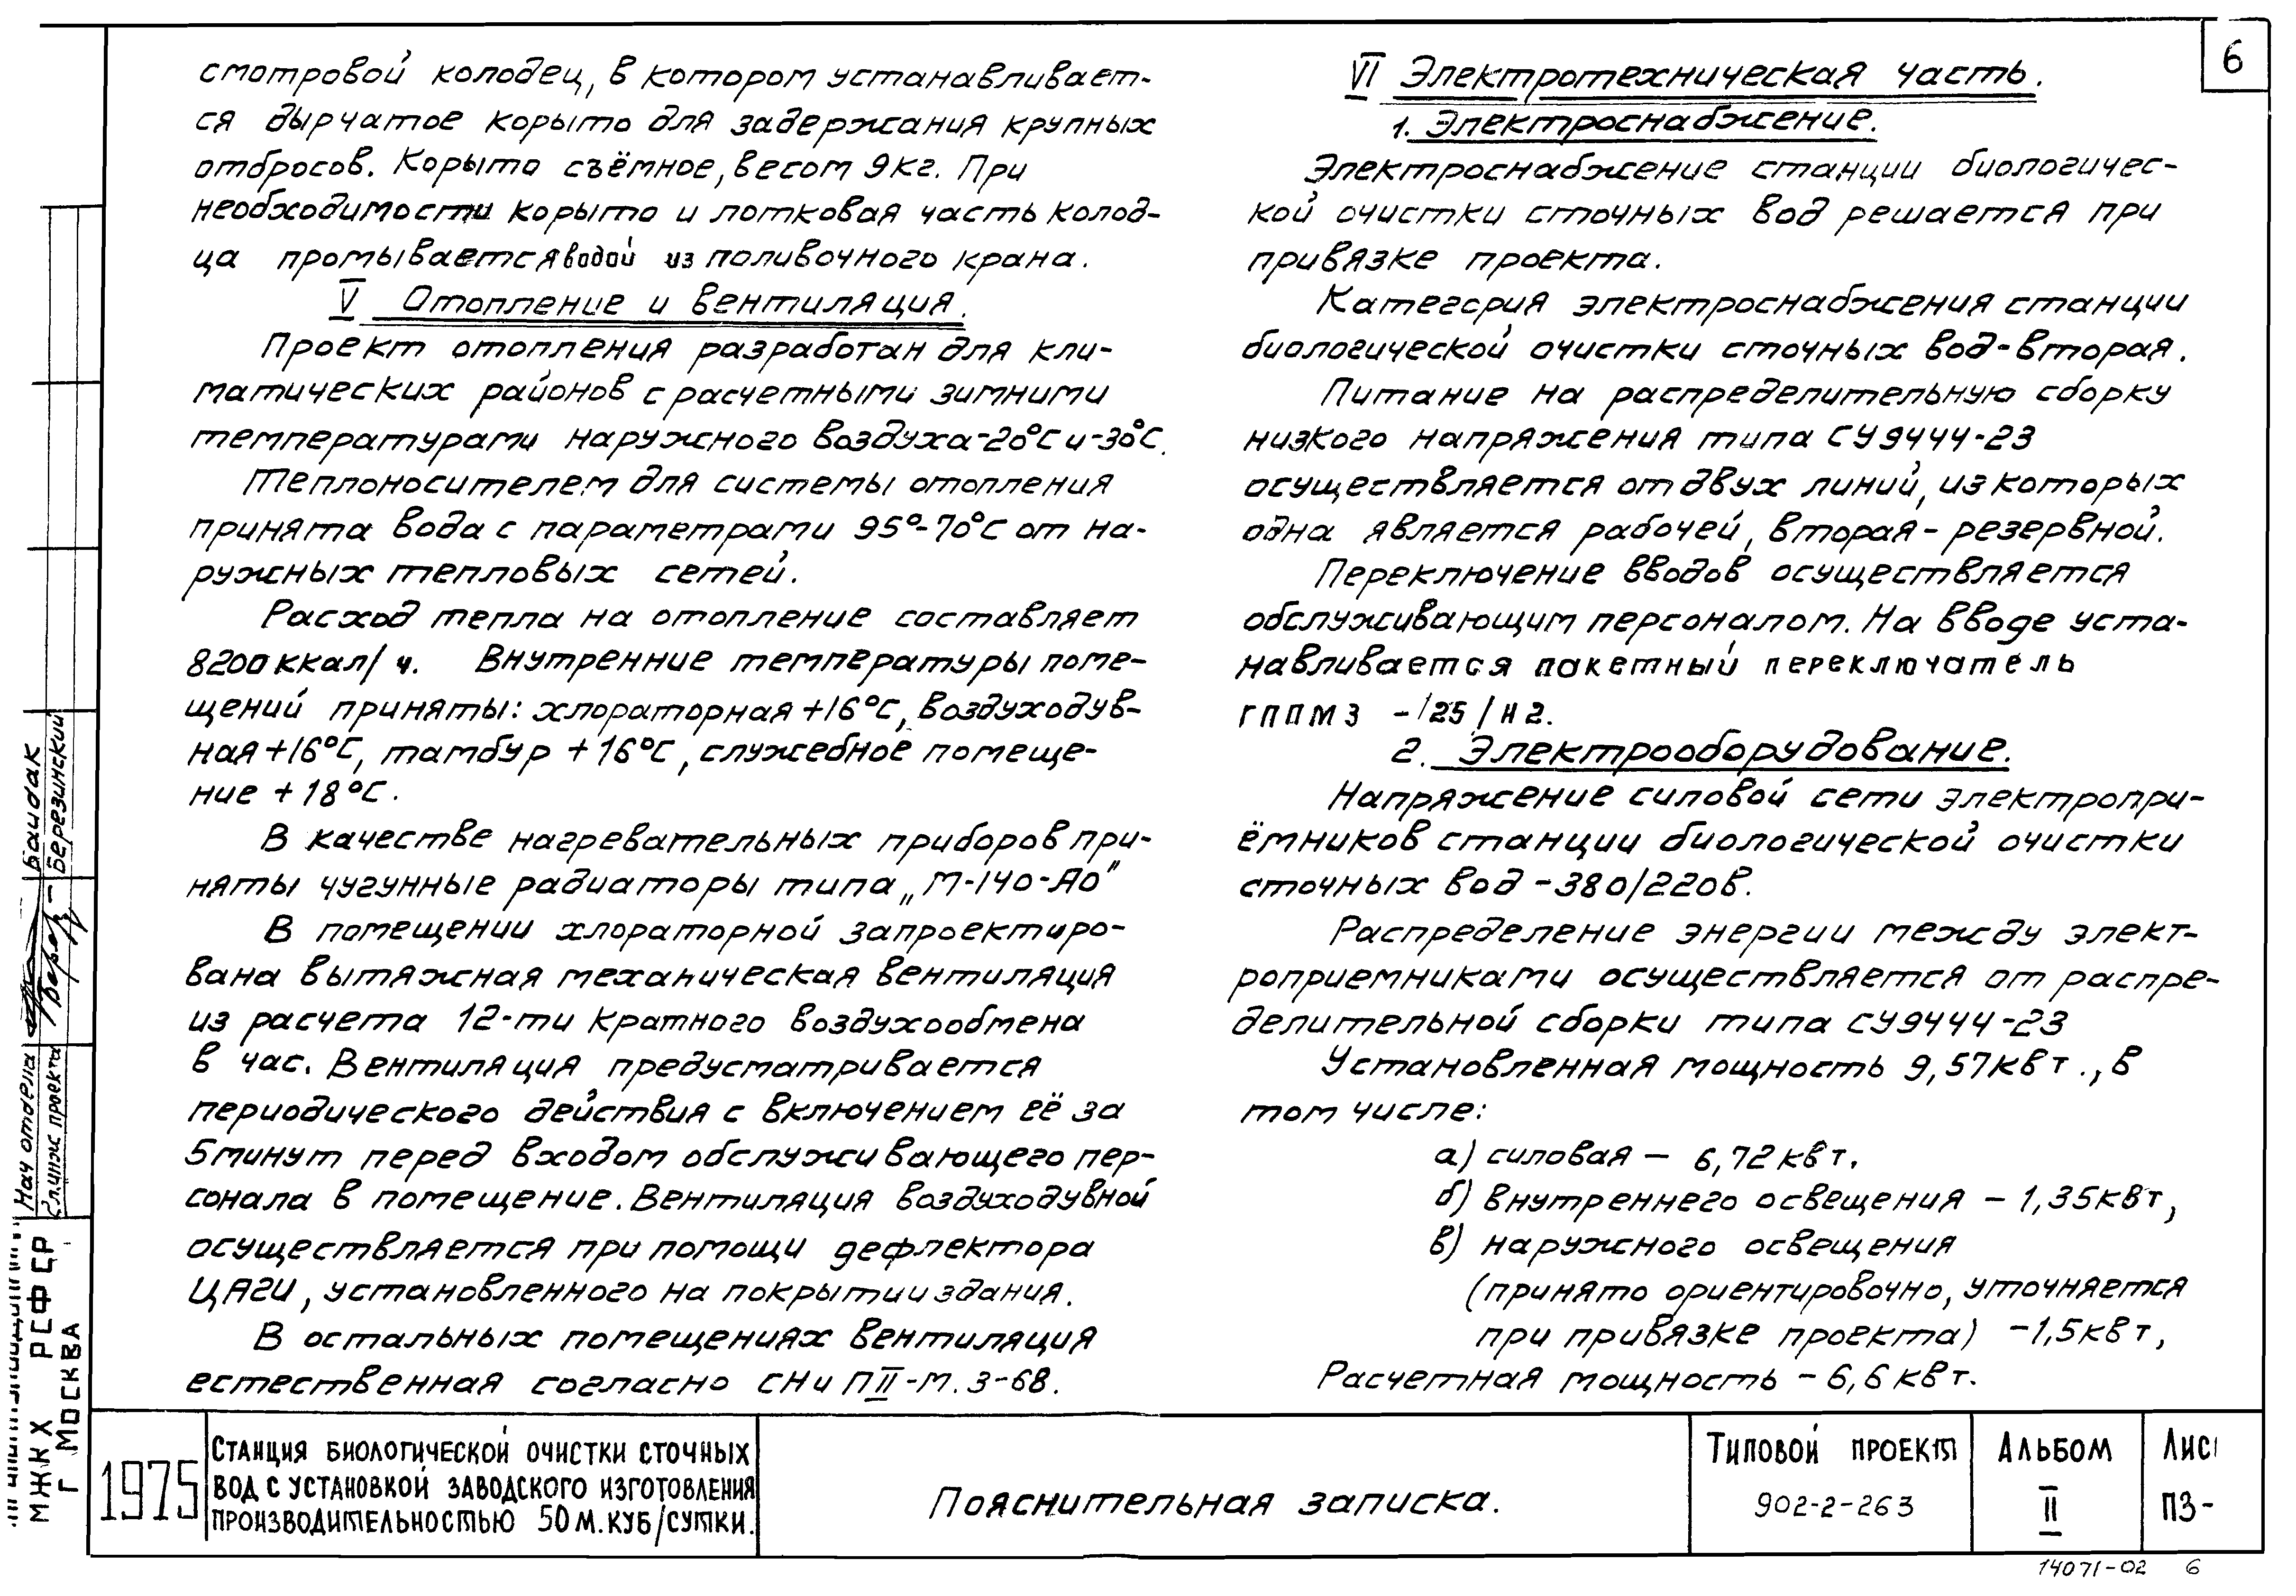 6
смотровой колодец, в котором устанавливает-
ся дырчатое корыто для задержания крупных
отбросов. Корыто съёмное, весом 9кг. При
необходимости корыто и лотковая часть колод-
ца промывается водой из поливочного крана.
V Отопление и вентиляция.
Проект отопления разработан для кли-
матических районов с расчетными зимними
температурами наружного воздуха -20°С и -30°С.
Теплоносителем для системы отопления
принята вода с параметрами 95°-70°С от на-
ружных тепловых сетей.
Расход тепла на отопление составляет
8200 ккал/ч. Внутренние температуры поме-
щений приняты: хлораторная +16°С, воздуходув-
ная +16°С, тамбур +16°С, служебное помеще-
ние +18°С.
В качестве нагревательных приборов при-
няты чугунные радиаторы типа „М-140-АО"
В помещении хлораторной запроектиро-
вана вытяжная механическая вентиляция
из расчета 12-ти кратного воздухообмена
в час. Вентиляция предусматривается
периодического действия с включением её за
5 минут перед входом обслуживающего пер-
сонала в помещение. Вентиляция воздуходувной
осуществляется при помощи дефлектора
ЦАГИ, установленного на покрытии здания.
В остальных помещениях вентиляция
естественная согласно СНиП II-М.3-68.
VI Электротехническая часть.
1. Электроснабжение.
Электроснабжение станции биологичес-
кой очистки сточных вод решается при
привязке проекта.
Категория электроснабжения станции
биологической очистки сточных вод-вторая.
Питание на распределительную сборку
низкого напряжения типа СУ9444-23
осуществляется от двух линий, из которых
одна является рабочей, вторая - резервной.
Переключение вводов осуществляется
обслуживающим персоналом. На вводе уста-
навливается пакетный переключатель
ГППМ3 -125/Н2.
2. Электрооборудование.
Напряжение силовой сети электропри-
ёмников станции биологической очистки
сточных вод - 380/220в.
Распределение энергии между элект-
роприемниками осуществляется от распре-
делительной сборки типа СУ9444-23
Установленная мощность 9,57квт., в
том числе:
а) силовая - 6,72квт.
б) внутреннего освещения - 1,35квт,
в) наружного освещения
(принято ориентировочно, уточняется
при привязке проекта) -1,5квт,
Расчетная мощность - 6,6квт.
Нач отдела Баидак
Гл.инж проекта Березинский
МЖКХ РСФСР
Г МОСКВА
1975
СТАНЦИЯ БИОЛОГИЧЕСКОЙ ОЧИСТКИ СТОЧНЫХ
ВОД С УСТАНОВКОЙ ЗАВОДСКОГО ИЗГОТОВЛЕНИЯ
ПРОИЗВОДИТЕЛЬНОСТЬЮ 50М.КУБ/СУТКИ.
Пояснительная записка.
ТИПОВОЙ ПРОЕКТ
902-2-263
АЛЬБОМ
II
Лис
ПЗ-
14071-02 6